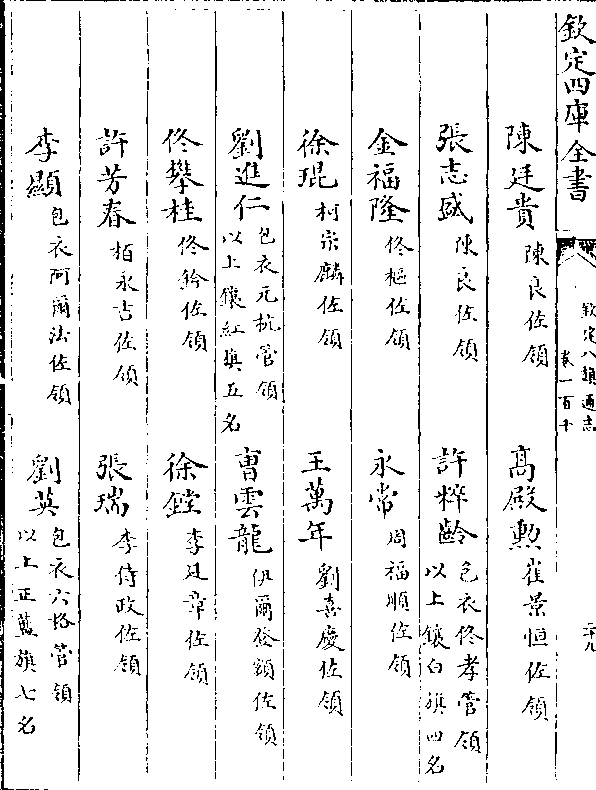 欽定四庫全書
欽定八旗通志
卷一百十
二十九
陳廷貴 陳良佐領 高殿勲 崔景恒佐領
張志盛 陳良佐領 許粹齡 包衣佟孝管領 以上鑲白旗四名
金福隆 佟樞佐領 永常 周福順佐領
徐琨 柯宗麟佐領 王萬年 劉喜慶佐領
劉進仁 包衣元杭管領 以上鑲紅旗五名 曹雲龍 伊爾登額佐領
佟攀桂 佟鈐佐領 徐鏜 李廷章佐領
許芳春 栢永吉佐領 張瑞 李侍政佐領
李顯 包衣阿爾法佐領 劉英 包衣六格管領 以上正藍旗七名